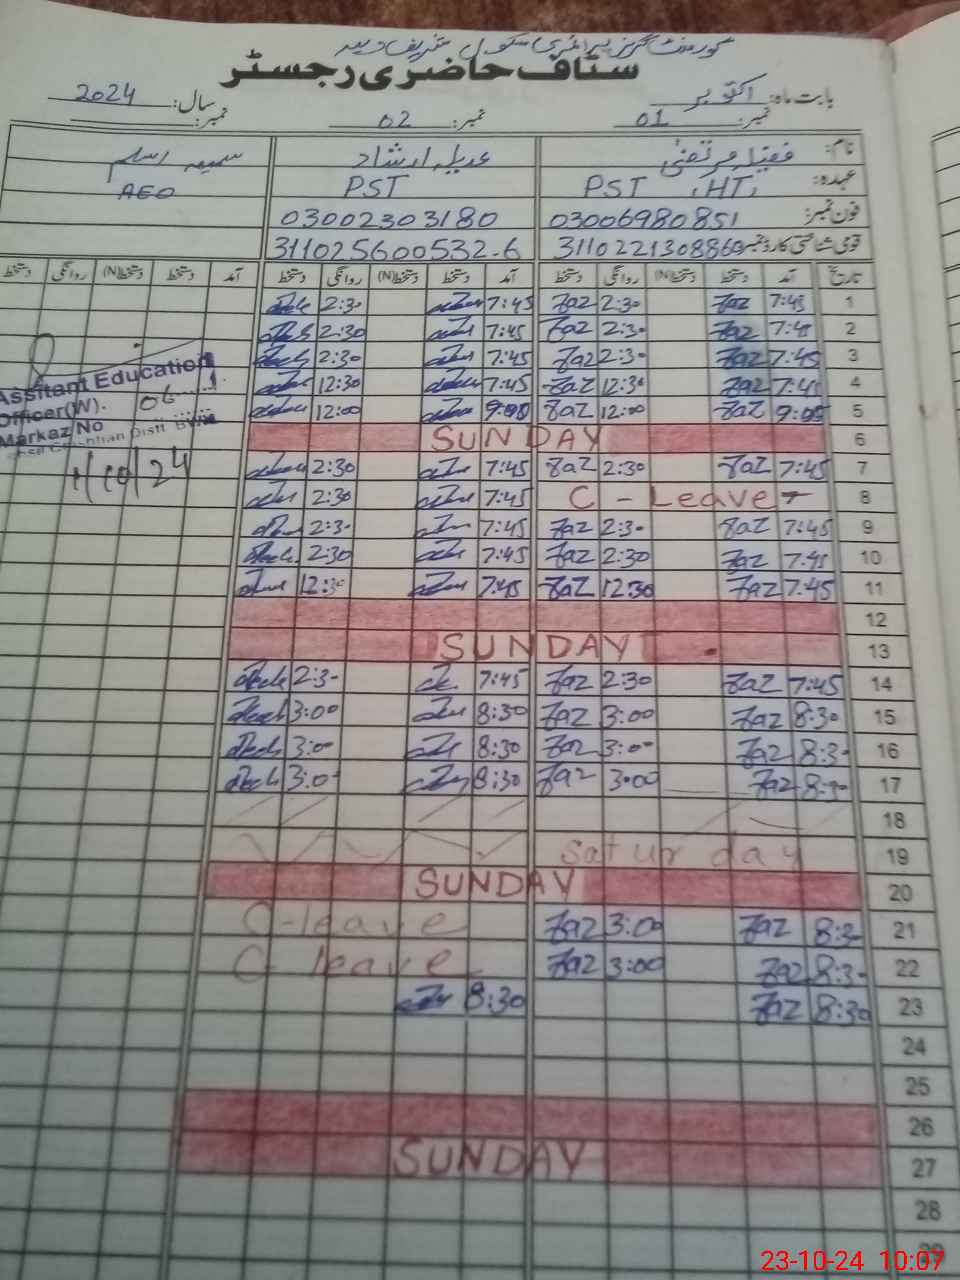 گورنمنٹ گرلز پرائمری سکول شریف
سٹاف حاضری رجسٹر
بابت ماہ: اکتوبر سال: 2024
نمبر: 01 نمبر: 02 نمبر:
نام: مرتضیٰ عدیلہ ارشاد سمیعہ اسلم
عہدہ: PST (HT) PST AEO
فون نمبر: 03006980851 03002303180
قومی شناختی کارڈ نمبر 311025600532-6
تاریخ آمد دستخط دستخط(N) روانگی دستخط آمد دستخط دستخط(N) روانگی دستخط آمد دستخط دستخط(N) روانگی دستخط
1 7:45 Faz 2:30 Faz 7:45 2:30
2 7:45 Faz 2:30 Faz 7:45 2:30
3 7:45 Faz 2:30 Faz 7:45 2:30
4 7:45 Faz 12:30 Faz 7:45 12:30
5 9:00 Faz 12:00 Faz 9:00 12:00
6 SUNDAY
7 7:45 Faz 2:30 Faz 7:45 2:30
8 C - Leave 7:45 2:30
9 7:45 Faz 2:30 Faz 7:45 2:30
10 7:45 Faz 2:30 Faz 7:45 2:30
11 7:45 Faz 12:30 Faz 7:45 12:30
12
13 SUNDAY
14 7:45 Faz 2:30 Faz 7:45 2:30
15 8:30 Faz 3:00 Faz 8:30 3:00
16 8:30 Faz 3:00 Faz 8:30 3:00
17 8:30 Faz 3:00 Faz 8:30 3:00
18
19 Saturday
20 SUNDAY
21 8:30 Faz 3:00 Faz C-leave
22 8:30 Faz 3:00 Faz C leave
23 8:30 Faz 8:30
24
25
26
27 SUNDAY
28
29
Assitant Education
Officer(W).
Markaz No 06
Distt
/10/24
23-10-24 10:07